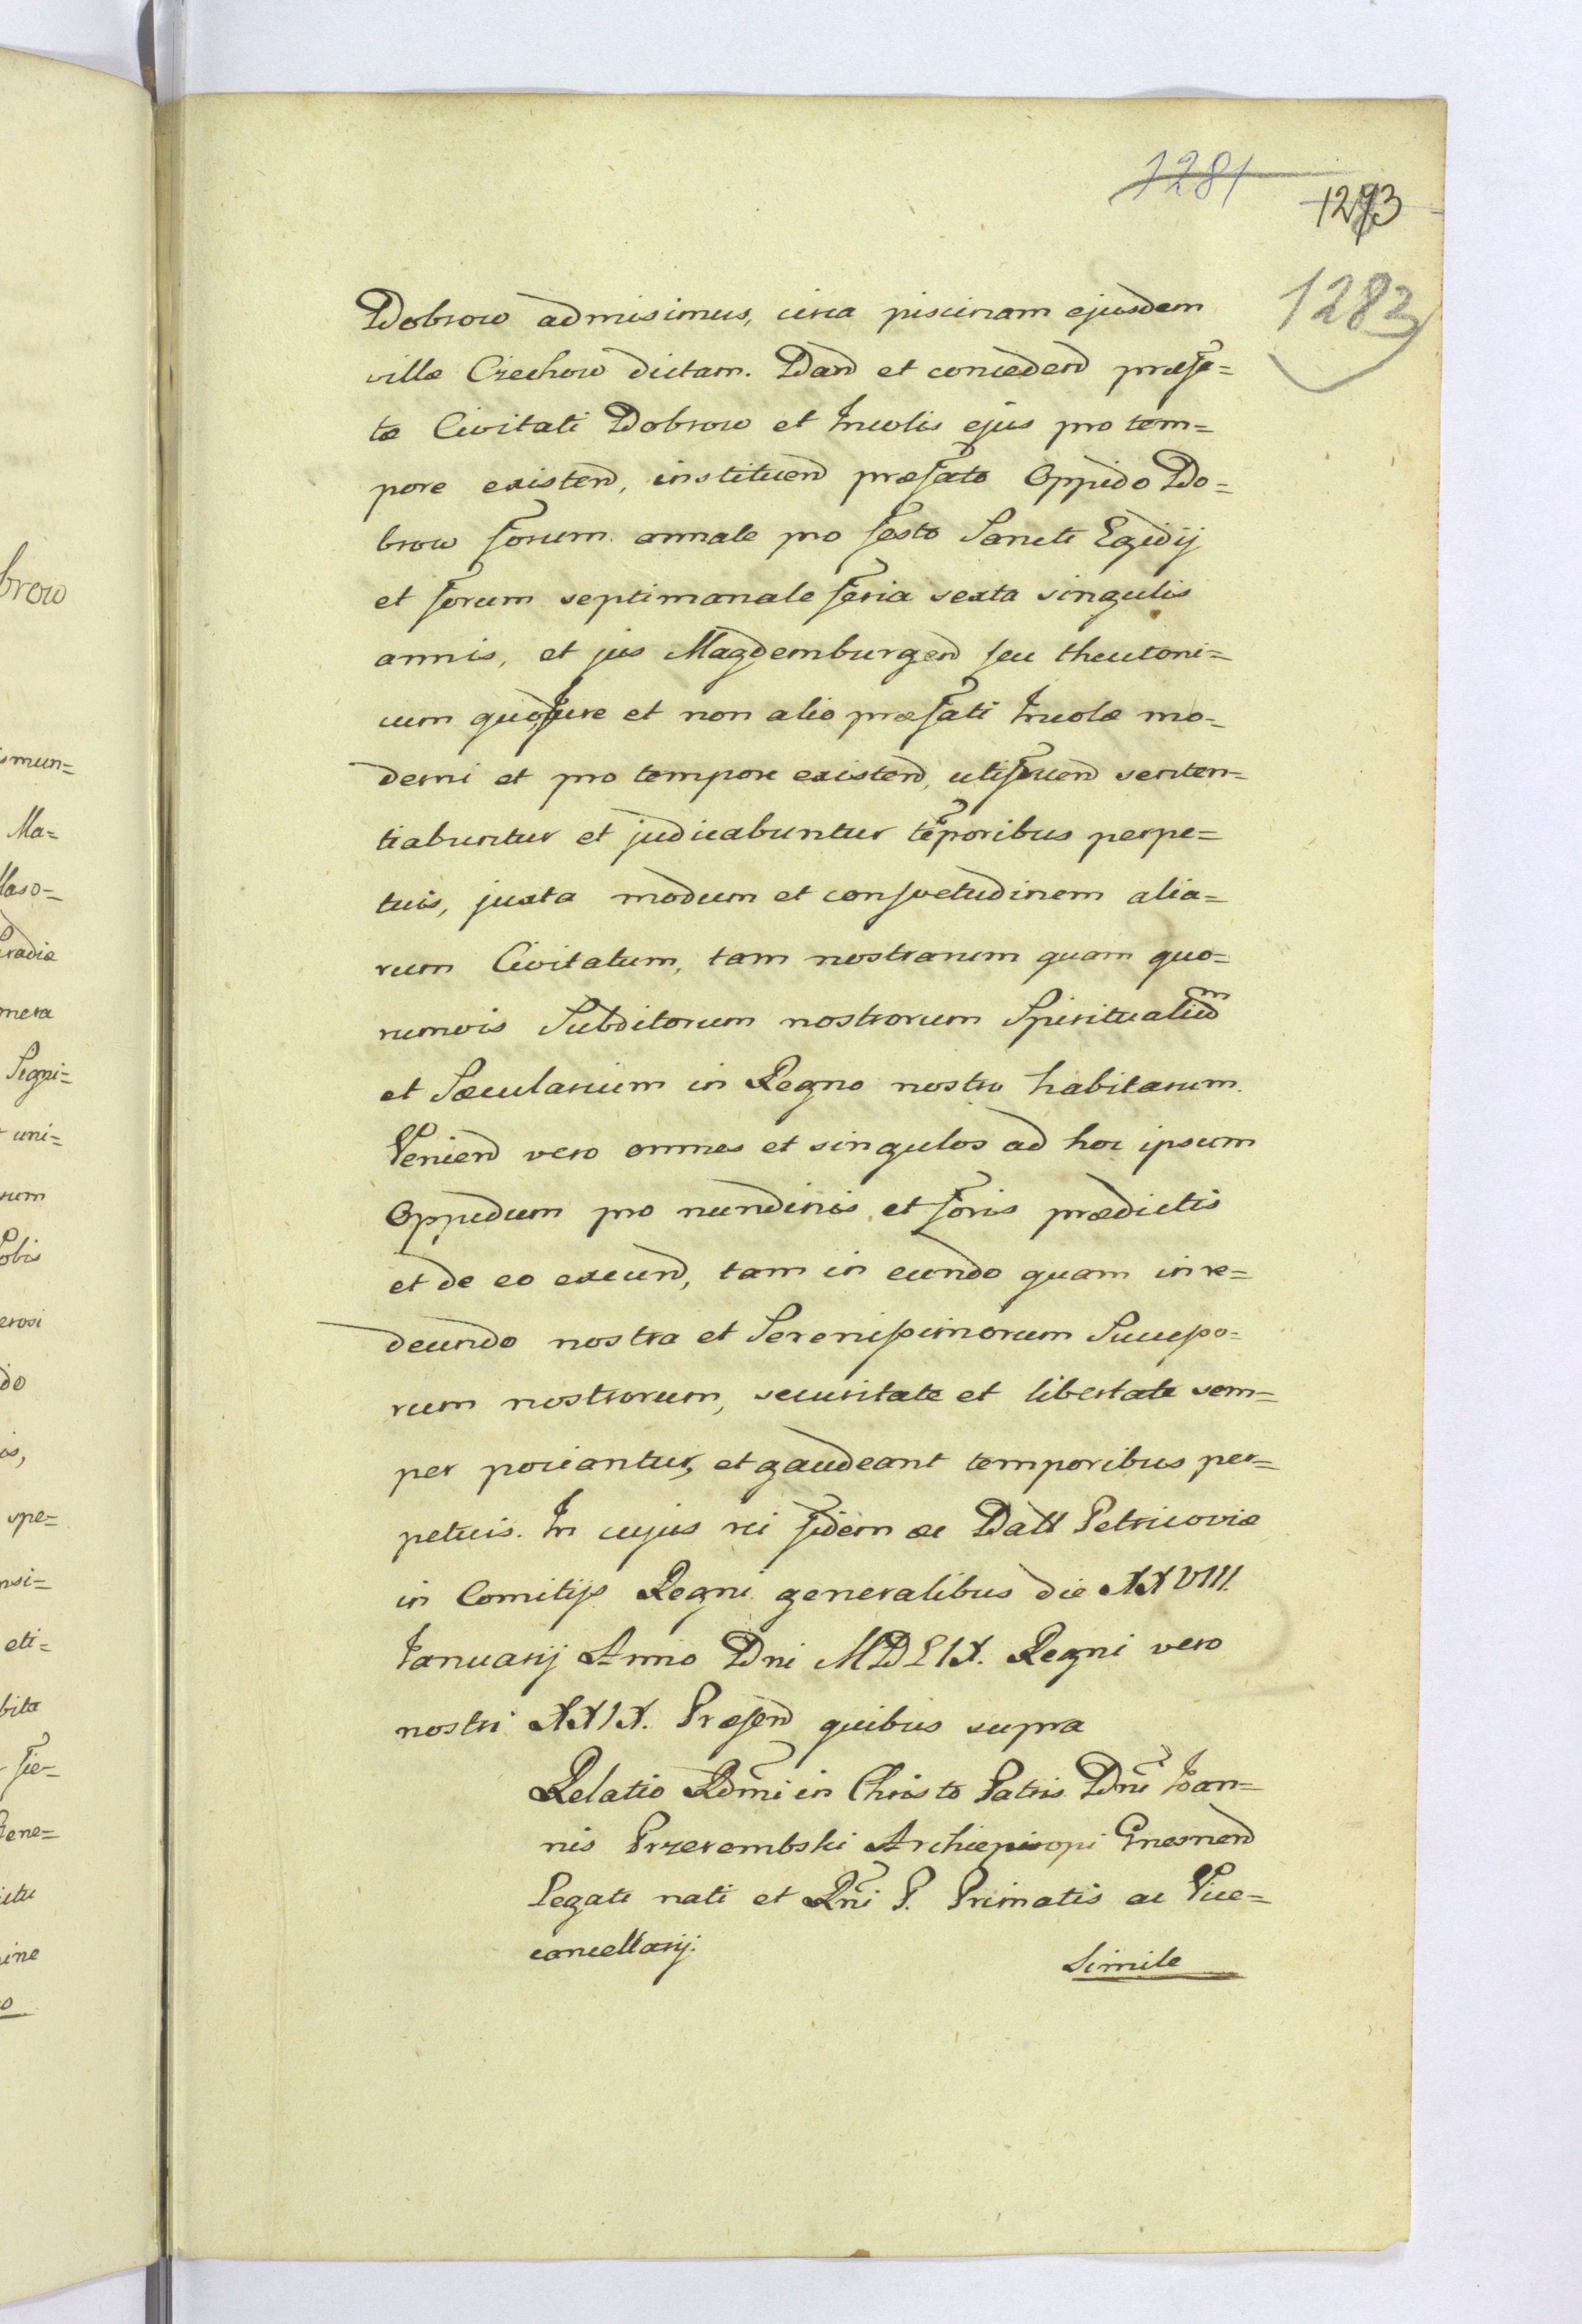 1281
1293
1283
Dobrow admisimus, circa piscinam ejusdem
villæ Czechow dictam. Dand et concedend præfa=
tæ Civitati Dobrow et Incolis ejus pro tem=
pore existend, instituend præfato Oppido Do=
brow forum annale pro festo Sancti Egidij
et forum septimanale feria sexta singulis
annis, et jus Magdemburgend seu theutoni=
cum quo jure et non alio præfati Incolæ mo=
derni et pro tempore existend, utifruend senten=
tiabuntur et judicabuntur teporibus perpe=
tuis, juxta modum et consvetudinem alia=
rum Civitatum, tam nostrarum quam quo=
rumvis Subditorum nostrorum Spiritualium
et Sæcularium in Regno nostro habitarum.
Veniend vero omnes et singulos ad hoc ipsum
Oppidum pro nundinis et foris prædictis
et de eo exeund, tam in eundo quam in re=
deundo nostra et Serenissimorum Successo=
rum nostrorum, securitate et libertate sem=
per potiantur, et gaudeant temporibus per=
petuis. In cujus rei fidem &c Datt Petricoviæ
in Comitijs Regni generalibus die XXVIII
Januarij Anno Dni MDLIX. Regni vero
nostri XXIX. Præsend quibus supra
Relatio Rdmi in Christo Patris Dni Joan=
nis Przerembski Archiepiscopi Gnesnend
Legati nati et Rni P. Primatis ac Vice=
cancellarij.
Simile
brow
smun=
Ma=
Maso=
radiæ
mera
Signi=
uni=
rum
obis
erosi
do
is,
spe=
nsi=
eti=
bita
fie=
Gene=
ictu
ine
o